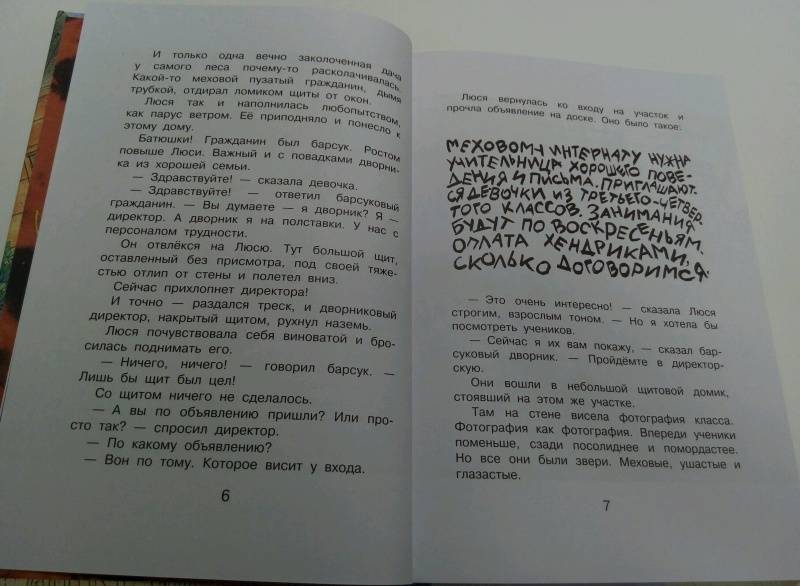 И только одна вечно заколоченная дача
у самого леса почему-то расколачивалась.
Какой-то меховой пузатый гражданин, дымя
трубкой, отдирал ломиком щиты от окон.
Люся так и наполнилась любопытством,
как парус ветром. Её приподняло и понесло к
этому дому.
Батюшки! Гражданин был барсук. Ростом
повыше Люси. Важный и с повадками дворни-
ка из хорошей семьи.
— Здравствуйте! — сказала девочка.
— Здравствуйте! — ответил барсуковый
гражданин. — Вы думаете — я дворник? Я —
директор. А дворник я на полставки. У нас с
персоналом трудности.
Он отвлёкся на Люсю. Тут большой щит,
оставленный без присмотра, под своей тяже-
стью отлип от стены и полетел вниз.
Сейчас прихлопнет директора!
И точно — раздался треск, и дворниковый
директор, накрытый щитом, рухнул наземь.
Люся почувствовала себя виноватой и бро-
силась поднимать его.
— Ничего, ничего! — говорил барсук. —
Лишь бы щит был цел!
Со щитом ничего не сделалось.
— А вы по объявлению пришли? Или про-
сто так? — спросил директор.
— По какому объявлению?
— Вон по тому. Которое висит у входа.
6
Люся вернулась ко входу на участок и
прочла объявление на доске. Оно было такое:
МЕХОВОМУ ИНТЕРНАТУ НУЖНА
УЧИТЕЛЬНИЦА ХОРОШЕГО ПОВЕ-
ДЕНИЯ И ПИСЬМА. ПРИГЛАШАЮТ-
СЯ ДЕВОЧКИ ИЗ ТРЕТЬЕГО-ЧЕТВЕР-
ТОГО КЛАССОВ. ЗАНИМАНИЯ
БУДУТ ПО ВОСКРЕСЕНЬЯМ.
ОПЛАТА ХЕНДРИКАМИ, А
СКОЛЬКО ДОГОВОРИМСЯ.
— Это очень интересно! — сказала Люся
строгим, взрослым тоном. — Но я хотела бы
посмотреть учеников.
— Сейчас я их вам покажу, — сказал бар-
суковый дворник. — Пройдёмте в директор-
скую.
Они вошли в небольшой щитовой домик,
стоявший на этом же участке.
Там на стене висела фотография класса.
Фотография как фотография. Впереди ученики
поменьше, сзади посолиднее и помордастее.
Но все они были звери. Меховые, ушастые и
глазастые.
7